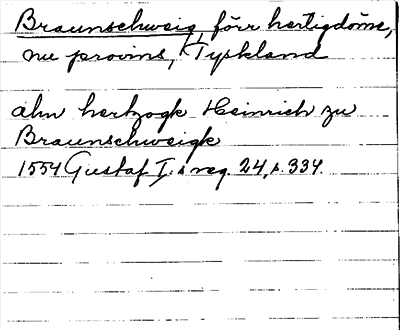 Braunschweig, förr hertigdöme,
nu provins, Tyskland
ahn hertzogk Heinrich zu
Braunschweigk
1554 Gustaf I:s reg. 24, s. 334.